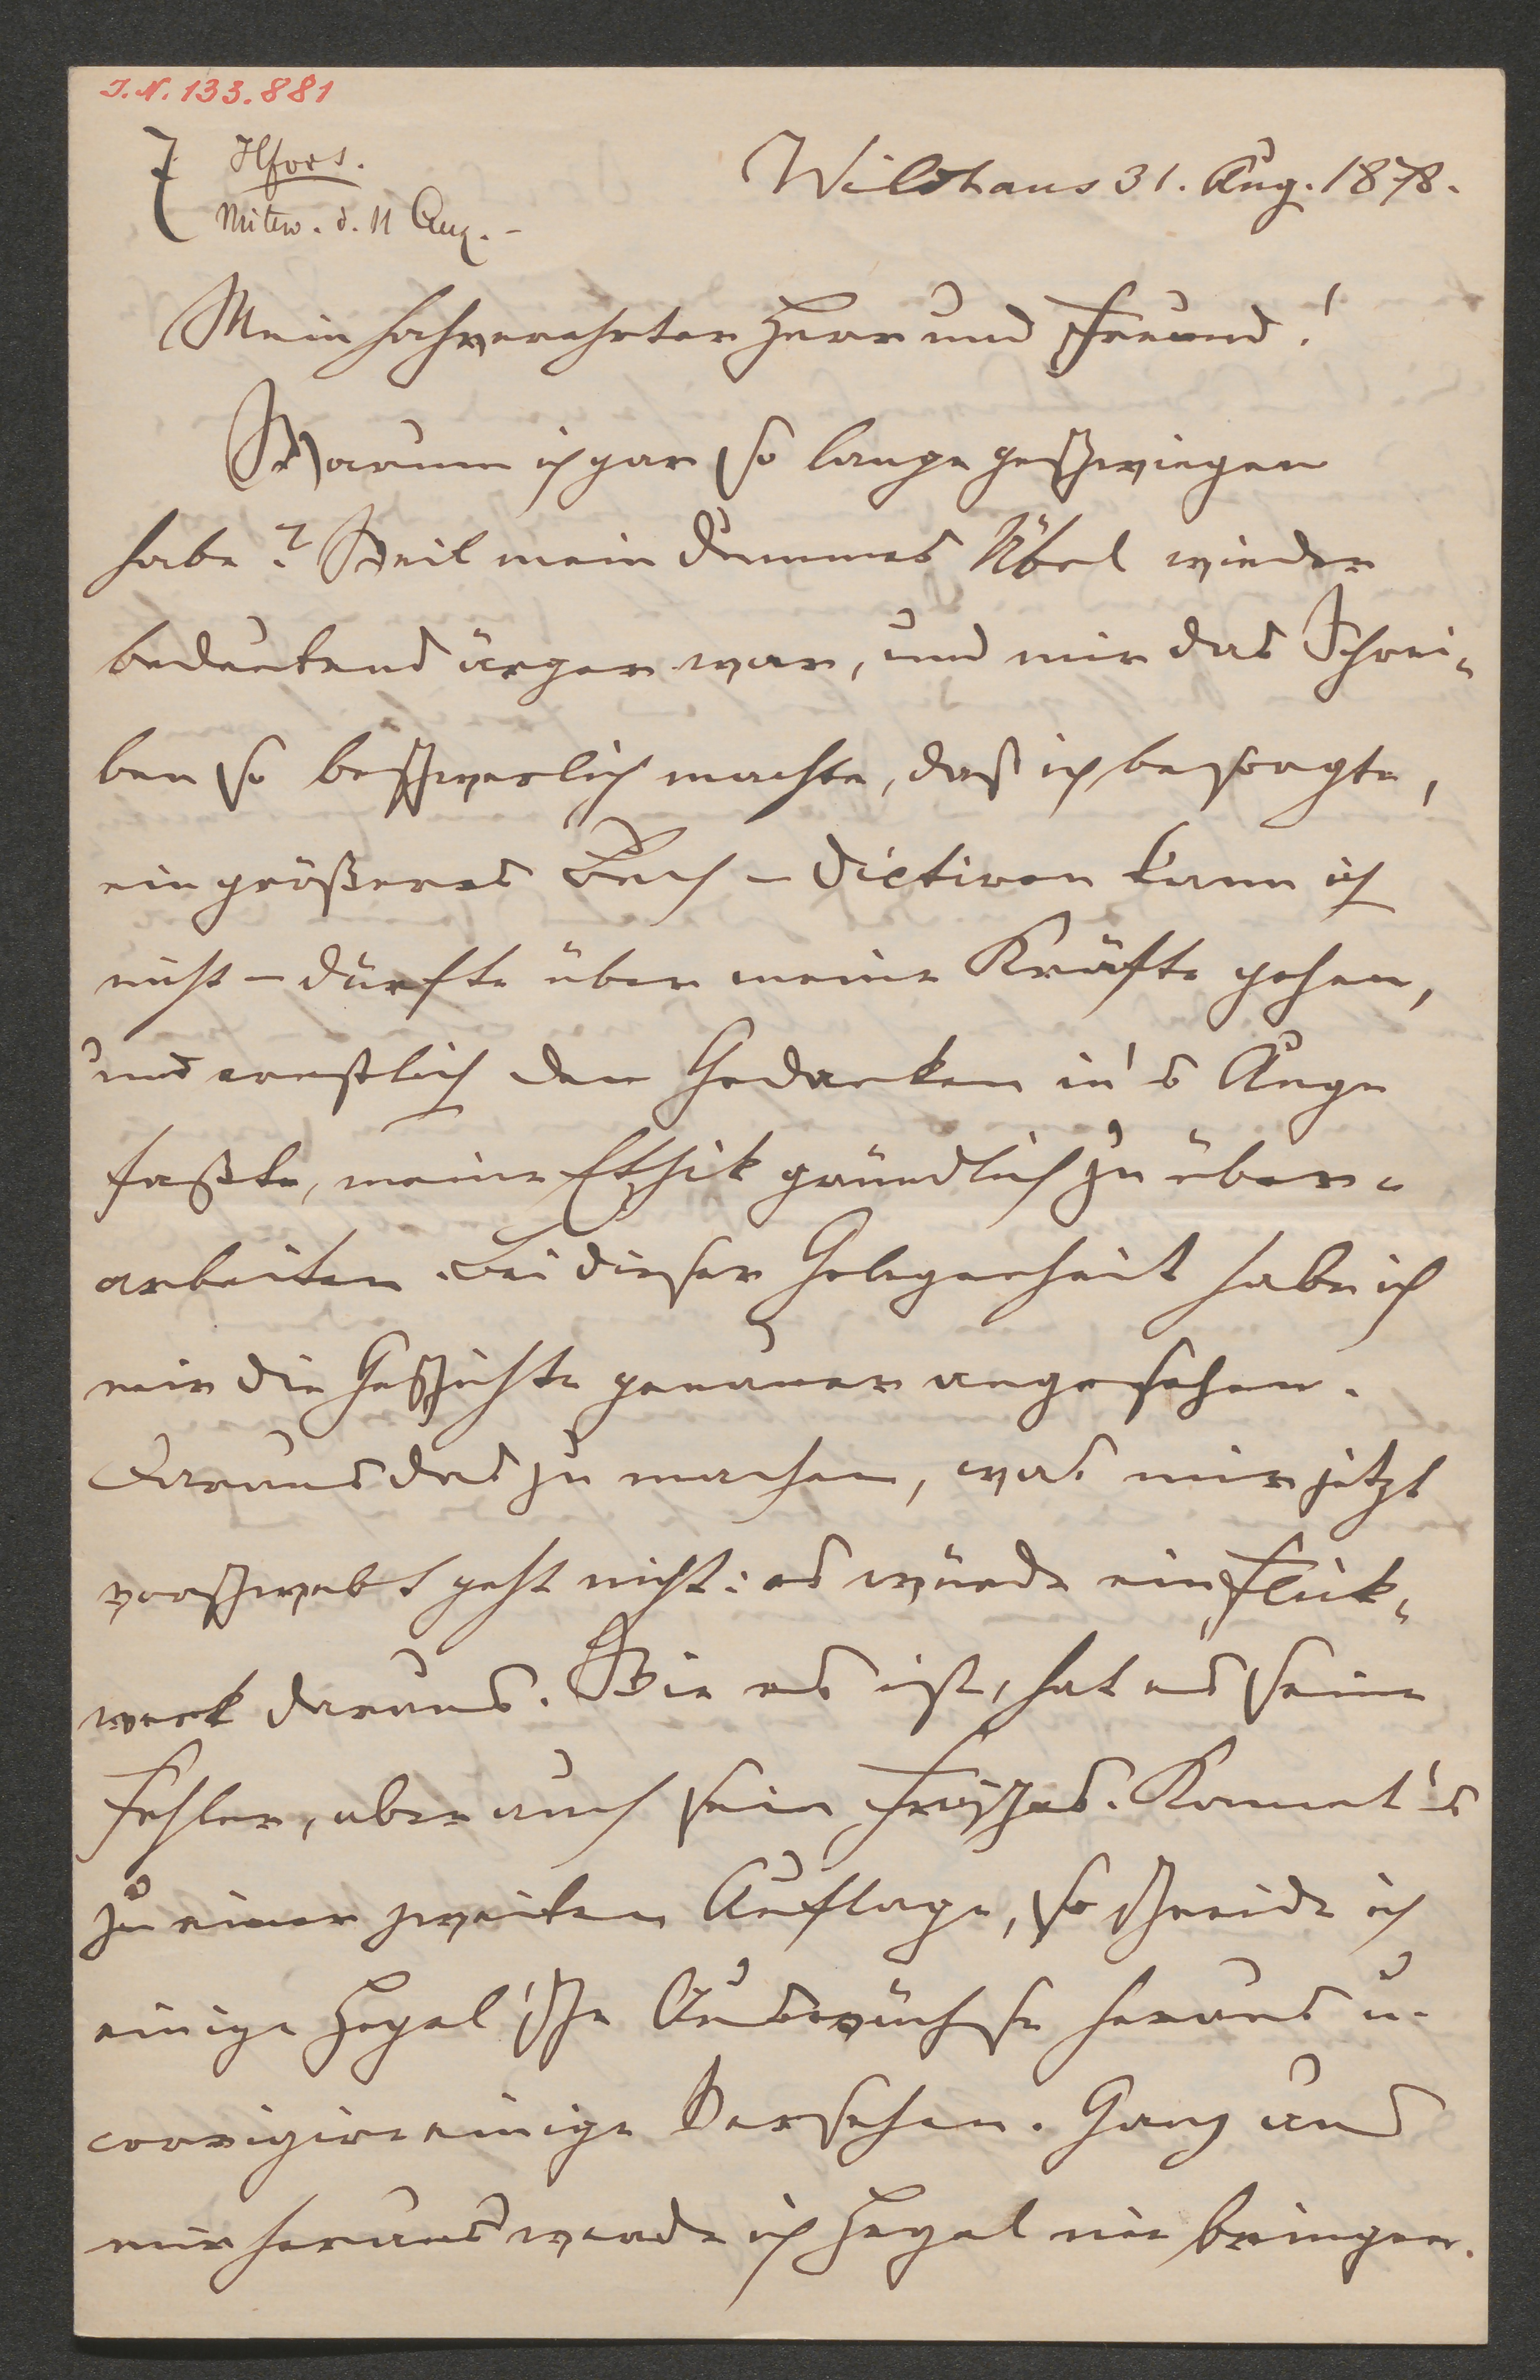 J.N. 133.881
Wildhaus 31. Aug. 1878.
Mittw. d. 11 Aug. –
Mein hochverehrter Herr und Freund!
Warum ich gar so lange geschwiegen
habe? Weil mein dummes Übel wieder
bedeutend ärger war, und mir das Schrei-
ben so beschwerlich machte, daß ich besorgte,
ein größeres Buch – dictiren kann ich
nicht – dürfte über meine Kräfte gehen,
und ernstlich den Gedanken in's Auge
faßte, meine Ethik gründlich zu über-
arbeiten. Bei dieser Gelegenheit habe ich
mir die Geschichte genauer angesehen.
Daraus das zu machen, was mir jetzt
vorschwebt geht nicht: es würde ein Flick-
werk daraus. Wie es ist, hat es seine
Fehler, aber auch sein Frisches. Kommt's
zu einer zweiten Auflage, so schneide ich
einige Hegel'sche Auswüchse heraus u.
corrigire einige Versehen. Ganz aus
mir heraus werde ich Hegel nie bringen.